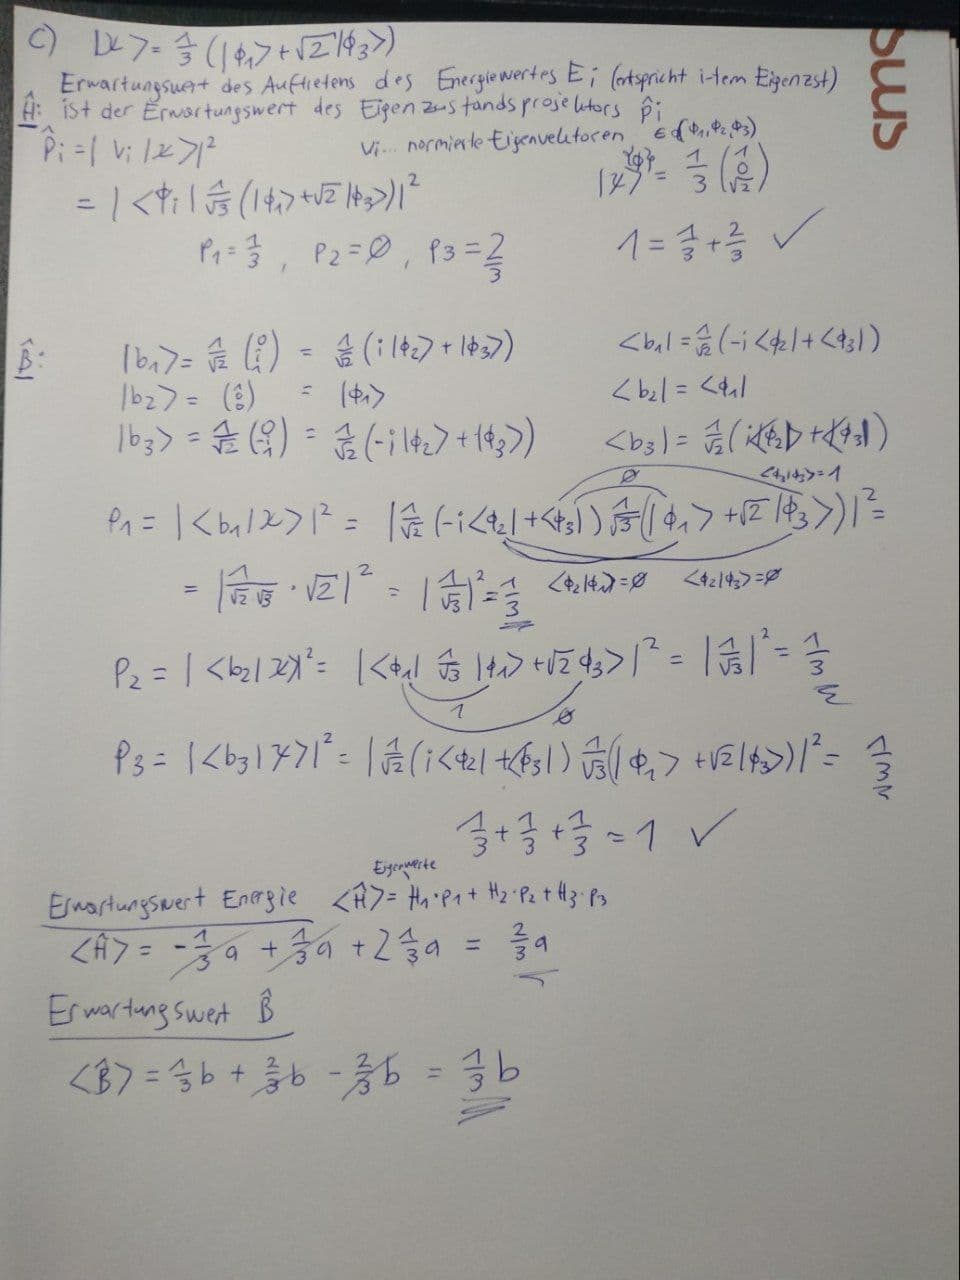 c) |ψ> = 1/3 (|ϕ1> + √2 |ϕ3>)
Erwartungswert des Auftretens des Energiewertes Ei (entspricht i-tem Eigenzst)
Ĥ: ist der Erwartungswert des Eigenzustandsprojektors p̂i
p̂i = | vi |ψ>|² vi... normierte Eigenvektoren ∈ {ϕ1, ϕ2, ϕ3}
= | <ϕi | 1/√3 (|ϕ1> + √2 |ϕ3>)|² |ψ> = 1/3 (1 0 √2)
P1 = 1/3 , P2 = ∅ , P3 = 2/3 1 = 1/3 + 2/3 ✓
B̂: |b1> = 1/√2 (0 i 1) = 1/√2 (i |ϕ2> + |ϕ3>) <b1| = 1/√2 (-i <ϕ2| + <ϕ3|)
|b2> = (1 0 0) = |ϕ1> <b2| = <ϕ1|
|b3> = 1/√2 (0 -i 1) = 1/√2 (-i |ϕ2> + |ϕ3>) <b3| = 1/√2 (i<ϕ2| + <ϕ3|)
∅ <ϕ3|ϕ3> = 1
P1 = |<b1|ψ>|² = |1/√2 (-i<ϕ2| + <ϕ3|) 1/√3 (|ϕ1> + √2 |ϕ3>)|² =
= |1/√2√3 · √2|² = |1/√3|² = 1/3 <ϕ2|ϕ1> = ∅ <ϕ2|ϕ3> = ∅
P2 = |<b2|ψ>|² = |<ϕ1| 1/√3 |ϕ1> + √2 ϕ3>|² = |1/√3|² = 1/3
1 ∅
P3 = |<b3|ψ>|² = |1/√2 (i<ϕ2| + <ϕ3|) 1/√3 (|ϕ1> + √2 |ϕ3>)|² = 1/3
1/3 + 1/3 + 1/3 = 1 ✓
Eigenwerte
Erwartungswert Energie <Ĥ> = H1·P1 + H2·P2 + H3·P3
<Ĥ> = -1/3 a + 1/3 a + 2 1/3 a = 2/3 a
Erwartungswert B̂
<B̂> = 1/3 b + 2/3 b - 2/3 b = 1/3 b
sms